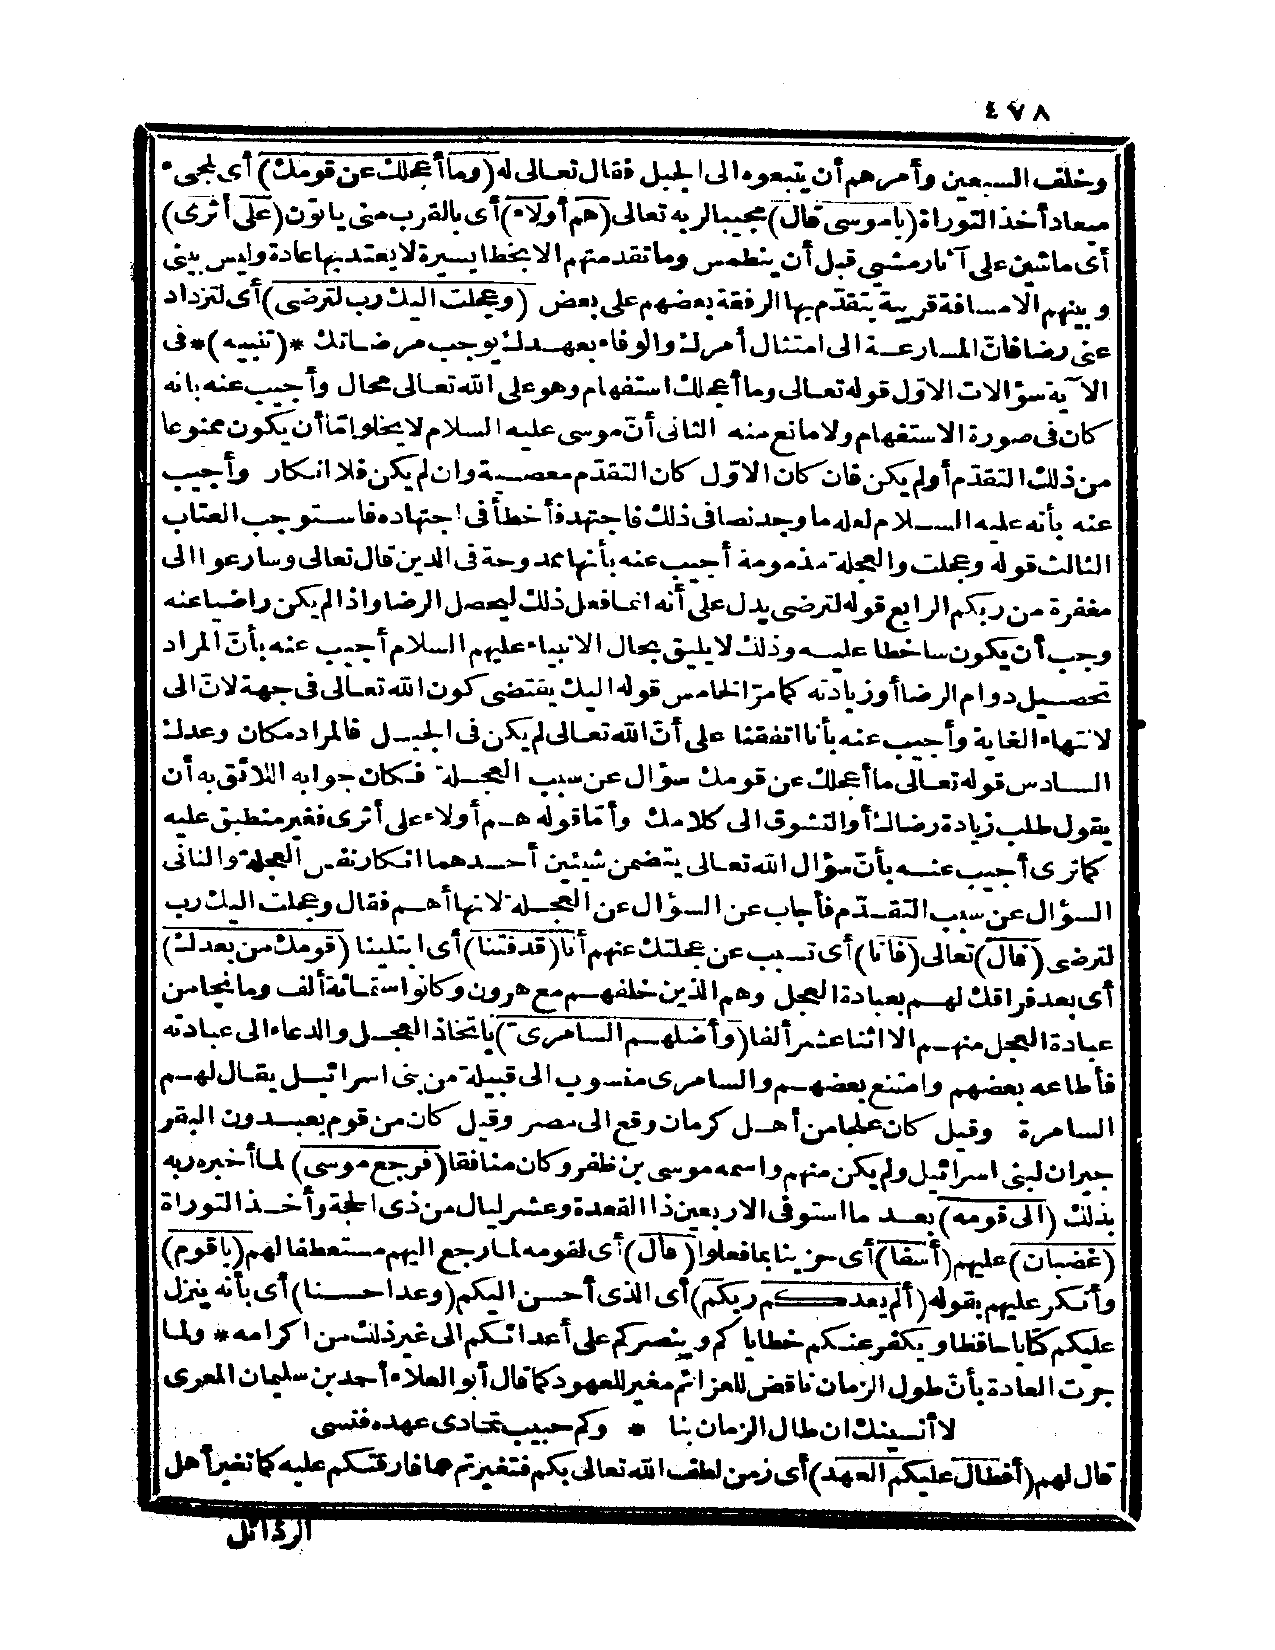 ٤٧٨
وخلف السبعين وأمرهم أن يتبعوه الى الجبل فقال تعالى له (وما أعجلك عن قومك) أى لمجىء
ميعاد أخذ التوراة (يا موسى قال) مجيبا لربه تعالى (هم أولاء) أى بالقرب منى يأتون (على أثرى)
أى ماشين على آثار مشى قبل أن ينطمس وما تقدمتهم الا بخطا يسيرة لا يعتد بها عادة وليس بينى
وبينهم الا مسافة قريبة يتقدم بها الرفقة بعضهم على بعض (وعجلت اليك رب لترضى) أى لتزداد
عنى رضا فان المسارعة الى امتثال أمرك والوفاء بعهدك يوجب مرضاتك *(تنبيه)* فى
الآية سؤالات الاول قوله تعالى وما أعجلك استفهام وهو على الله تعالى محال وأجيب عنه بانه
كان فى صورة الاستفهام ولا مانع منه الثانى أن موسى عليه السلام لا يخلو اما أن يكون ممنوعا
من ذلك التقدم أو لم يكن فان كان الاول كان التقدم معصية وان لم يكن فلا انكار وأجيب
عنه بأنه عليه السلام لعله ما وجد نصا فى ذلك فاجتهد فأخطأ فى اجتهاده فاستوجب العتاب
الثالث قوله وعجلت والعجلة مذمومة أجيب عنه بأنها ممدوحة فى الدين قال تعالى وسارعوا الى
مغفرة من ربكم الرابع قوله لترضى يدل على أنه انما فعل ذلك ليحصل الرضا واذا لم يكن راضيا عنه
وجب أن يكون ساخطا عليه وذلك لا يليق بحال الانبياء عليهم السلام أجيب عنه بأن المراد
تحصيل دوام الرضا أو زيادته كما مر الخامس قوله اليك يقتضى كون الله تعالى فى جهة لان الى
لانتهاء الغاية وأجيب عنه بأنا اتفقنا على أن الله تعالى لم يكن فى الجبل فالمراد مكان وعدك
السادس قوله تعالى ما أعجلك عن قومك سؤال عن سبب العجلة فكان جوابه اللائق به أن
يقول طلب زيادة رضاك أو التشوق الى كلامك وأما قوله هم أولاء على أثرى فغير منطبق عليه
كما ترى أجيب عنه بأن سؤال الله تعالى يتضمن شيئين أحدهما انكار نفس العجلة والثانى
السؤال عن سبب التقدم فأجاب عن السؤال عن العجلة لانها أهم فقال وعجلت اليك رب
لترضى (قال) تعالى (فانا) أى تسبب عن عجلتك عنهم أنا (قد فتنا) أى ابتلينا (قومك من بعدك)
أى بعد فراقك لهم بعبادة العجل وهم الذين خلفهم مع هرون وكانوا ستمائة ألف وما نجا من
عبادة العجل منهم الا اثنا عشر ألفا (وأضلهم السامرى) باتخاذ العجل والدعاء الى عبادته
فأطاعه بعضهم وامتنع بعضهم والسامرى منسوب الى قبيلة من بنى اسرائيل يقال لهم
السامرة وقيل كان علجا من أهل كرمان وقع الى مصر وقيل كان من قوم يعبدون البقر
جيران لبنى اسرائيل ولم يكن منهم واسمه موسى بن ظفر وكان منافقا (فرجع موسى) لما أخبره ربه
بذلك (الى قومه) بعد ما استوفى الاربعين ذا القعدة وعشر ليال من ذى الحجة وأخذ التوراة
(غضبان) عليهم (أسفا) أى حزينا بما فعلوا (قال) أى لقومه لما رجع اليهم مستعطفا لهم (يا قوم)
وأنكر عليهم بقوله (ألم يعدكم ربكم) أى الذى أحسن اليكم (وعدا حسنا) أى بأنه ينزل
عليكم كتابا حافظا ويكفر عنكم خطاياكم وينصركم على أعدائكم الى غير ذلك من اكرامه * ولما
جرت العادة بأن طول الزمان ناقض للعزائم مغير للعهود كما قال أبو العلاء أحمد بن سليمان المعرى
لا أنسينك ان طال الزمان بنا * وكم حبيب تمادى عهده فنسى
قال لهم (أفطال عليكم العهد) أى زمن لطف الله تعالى بكم فتغيرتم عما فارقتكم عليه كما تغير أهل
الرذائل